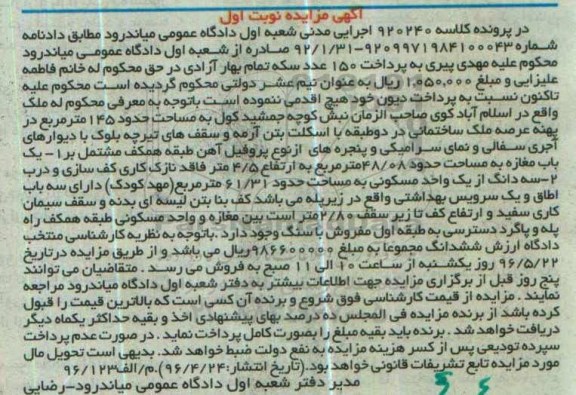 آگهی مزایده نوبت اول
در پرونده کلاسه ۹۲۰۲۴۰ اجرایی مدنی شعبه اول دادگاه عمومی میاندرود مطابق دادنامه
شماره ۹۲۰۹۹۷۱۹۸۴۱۰۰۰۴۳-۹۲/۱/۳۱ صادره از شعبه اول دادگاه عمومی میاندرود
محکوم علیه مهدی پیری به پرداخت ۱۵۰ عدد سکه تمام بهار آزادی در حق محکوم له خانم فاطمه
علیزایی و مبلغ ۱,۰۵۰,۰۰۰ ریال به عنوان نیم عشر دولتی محکوم گردیده است محکوم علیه
تاکنون نسبت به پرداخت دیون خود هیچ اقدمی ننموده است باتوجه به معرفی محکوم له ملک
واقع در اسلام آباد کوی صاحب الزمان نبش کوچه جمشید کول به مساحت حدود ۱۴۵ مترمربع در
پهنه عرصه ملک ساختمانی در دوطبقه با اسکلت بتن آرمه و سقف های تیرچه بلوک با دیوارهای
آجری سفالی و نمای سرامیکی و پنجره های ازنوع پروفیل آهن طبقه همکف مشتمل بر ۱- یک
باب مغازه به مساحت حدود ۴۸/۰۸ مترمربع به ارتفاع ۴/۵ متر فاقد نازک کاری کف سازی و درب
۲-سه دانگ از یک واحد مسکونی به مساحت حدود ۶۱/۳۱ مترمربع(مهد کودک) دارای سه باب
اطاق و یک سرویس بهداشتی واقع در زیر پله می باشد کف بنا بتن لیسه ای بدنه و سقف سیمان
کاری سفید و ارتفاع کف تا زیر سقف ۲/۸۰ متر است بین مغازه و واحد مسکونی طبقه همکف راه
پله و پاگرد دسترسی به طبقه اول مفروش با سنگ وجود دارد .باتوجه به نظریه کارشناسی منتخب
دادگاه ارزش ششدانگ مجموعا به مبلغ ۹۸۶۶۰۰۰۰۰ ریال می باشد و از طریق مزایده در تاریخ
۹۶/۵/۲۲ روز یکشنبه از ساعت ۱۰ الی ۱۱ صبح به فروش می رسد . متقاضیان می توانند
پنج روز قبل از برگزاری مزایده جهت اطلاعات بیشتر به دفتر شعبه اول دادگاه میاندرود مراجعه
نمایند . مزایده از قیمت کارشناسی فوق شروع و برنده آن کسی است که بالاترین قیمت را قبول
کرده باشد از برنده مزایده فی المجلس ده درصد بهای پیشنهادی اخذ و بقیه حداکثر یکماه دیگر
دریافت خواهد شد . برنده باید بقیه مبلغ را بصورت کامل پرداخت نماید . در صورت عدم پرداخت
سپرده تودیعی پس از کسر هزینه مزایده به نفع دولت ضبط خواهد شد. بدیهی است تحویل مال
مورد مزایده تابع تشریفات قانونی خواهد بود.(تاریخ انتشار:۹۶/۴/۲۴).م/الف۹۶/۱۲۳
مدیر دفتر شعبه اول دادگاه عمومی میاندرود-رضایی